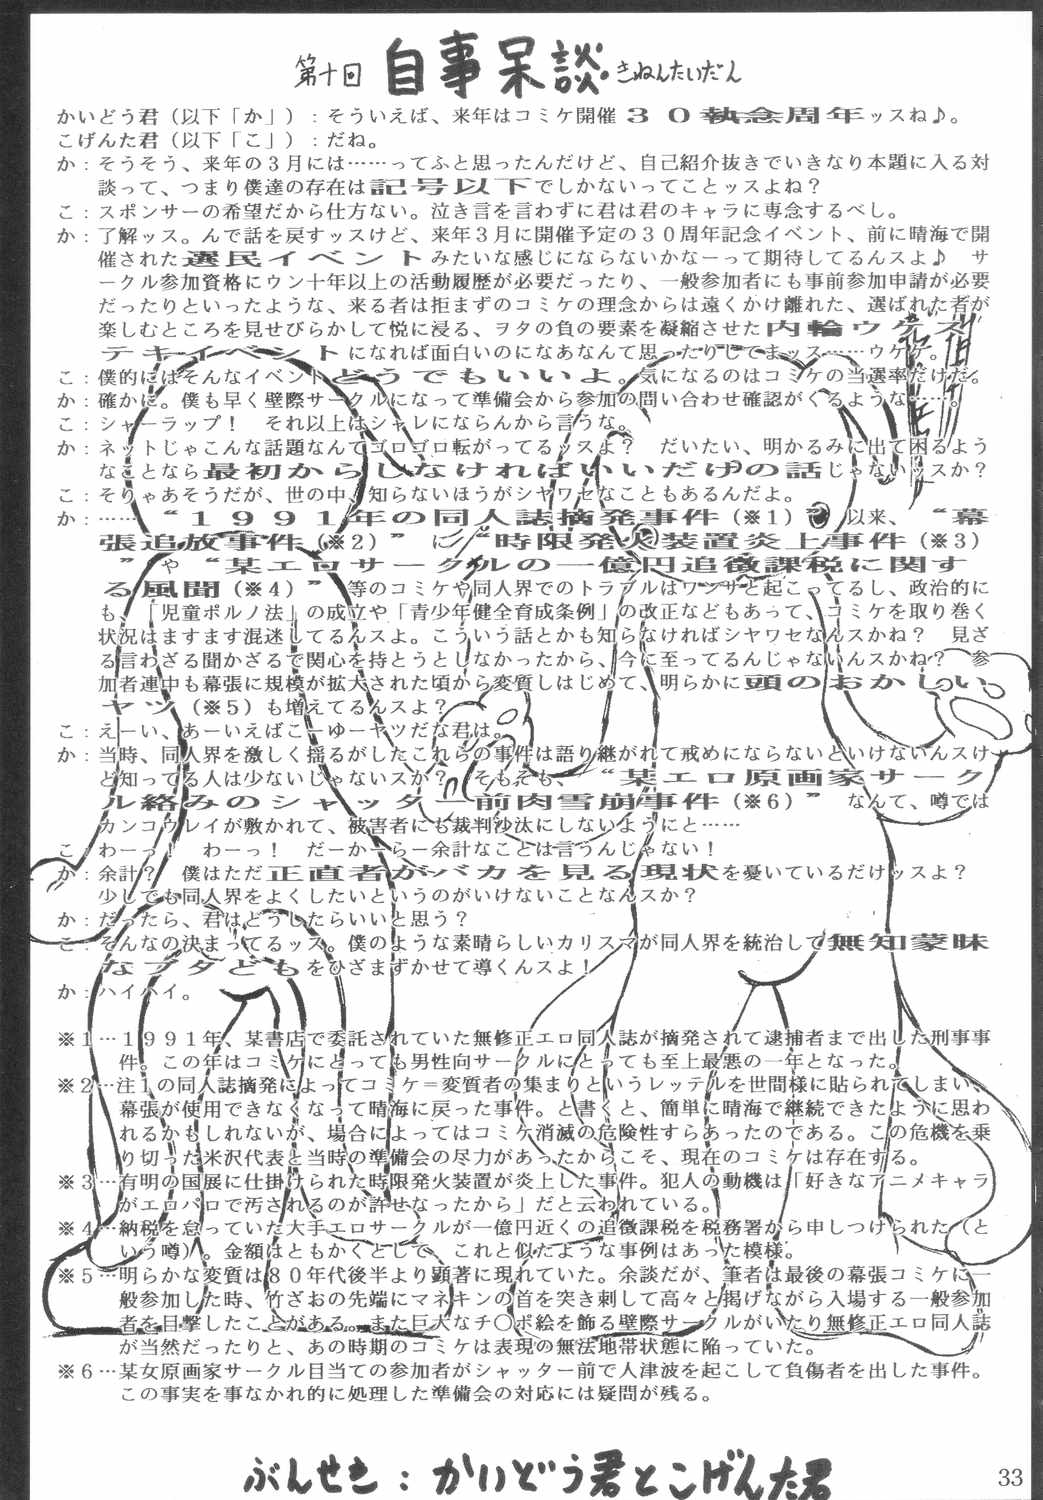 第十回 自事呆談 きねんたいだん
かいどう君（以下「か」）：そういえば、来年はコミケ開催３０執念周年ッスね♪。
こげんた君（以下「こ」）：だね。
か：そうそう、来年の３月には……ってふと思ったんだけど、自己紹介抜きでいきなり本題に入る対
談って、つまり僕達の存在は記号以下でしかないってことッスよね？
こ：スポンサーの希望だから仕方ない。泣き言を言わずに君は君のキャラに専念するべし。
か：了解ッス。んで話を戻すッスけど、来年３月に開催予定の３０周年記念イベント、前に晴海で開
催された選民イベントみたいな感じにならないかなーって期待してるんスよ♪　サ
ークル参加資格にウン十年以上の活動履歴が必要だったり、一般参加者にも事前参加申請が必要
だったりといったような、来る者は拒まずのコミケの理念からは遠くかけ離れた、選ばれた者が
楽しむところを見せびらかして悦に浸る、ヲタの負の要素を凝縮させた内輪ウケス
テキイベントになれば面白いのになあなんて思ったりしてまッス……ウケケ。
こ：僕的にはそんなイベントどうでもいいよ。気になるのはコミケの当選率だけだ。
か：確かに。僕も早く壁際サークルになって準備会から参加の問い合わせ確認がくるような……。
こ：シャーラップ！　それ以上はシャレにならんから言うな。
か：ネットじゃこんな話題なんてゴロゴロ転がってるッスよ？　だいたい、明かるみに出て困るよう
なことなら最初からしなければいいだけの話じゃないッスか？
こ：そりゃあそうだが、世の中、知らないほうがシヤワセなこともあるんだよ。
か：……“１９９１年の同人誌摘発事件（※１）”以来、“幕
張追放事件（※２）”に“時限発火装置炎上事件（※３）
”や“某エロサークルの一億円追徴課税に関す
る風聞（※４）”等のコミケや同人界でのトラブルはワンサと起こってるし、政治的に
も、「児童ポルノ法」の成立や「青少年健全育成条例」の改正などもあって、コミケを取り巻く
状況はますます混迷してるんスよ。こういう話とかも知らなければシヤワセなんスかね？　見ざ
る言わざる聞かざるで関心を持とうとしなかったから、今に至ってるんじゃないんスかね？　参
加者連中も幕張に規模が拡大された頃から変質しはじめて、明らかに頭のおかしい
ヤツ（※５）も増えてるんスよ？
こ：えーい、あーいえばこーゆーヤツだな君は。
か：当時、同人界を激しく揺るがしたこれらの事件は語り継がれて戒めにならないといけないんスけ
ど知ってる人は少ないじゃないスか？　そもそも、“某エロ原画家サーク
ル絡みのシャッター前肉雪崩事件（※６）”　なんて、噂では
カンコウレイが敷かれて、被害者にも裁判沙汰にしないようにと……
こ：わーっ！　わーっ！　だーかーらー余計なことは言うんじゃない！
か：余計？　僕はただ正直者がバカを見る現状を憂いているだけッスよ？
少しでも同人界をよくしたいというのがいけないことなんスか？
か：だったら、君はどうしたらいいと思う？
こ：そんなの決まってるッス。僕のような素晴らしいカリスマが同人界を統治して無知蒙昧
なブタどもをひざまずかせて導くんスよ！
か：ハイハイ。
※１…１９９１年、某書店で委託されていた無修正エロ同人誌が摘発されて逮捕者まで出した刑事事
件。この年はコミケにとっても男性向サークルにとっても至上最悪の一年となった。
※２…注１の同人誌摘発によってコミケ＝変質者の集まりというレッテルを世間様に貼られてしまい、
幕張が使用できなくなって晴海に戻った事件。と書くと、簡単に晴海で継続できたように思わ
れるかもしれないが、場合によってはコミケ消滅の危険性すらあったのである。この危機を乗
り切った米沢代表と当時の準備会の尽力があったからこそ、現在のコミケは存在する。
※３…有明の国展に仕掛けられた時限発火装置が炎上した事件。犯人の動機は「好きなアニメキャラ
がエロパロで汚されるのが許せなかったから」だと云われている。
※４…納税を怠っていた大手エロサークルが一億円近くの追徴課税を税務署から申しつけられた（と
いう噂）。金額はともかくとして、これと似たような事例はあった模様。
※５…明らかな変質は８０年代後半より顕著に現れていた。余談だが、筆者は最後の幕張コミケに一
般参加した時、竹ざおの先端にマネキンの首を突き刺して高々と掲げながら入場する一般参加
者を目撃したことがある。また巨大なチ〇ポ絵を飾る壁際サークルがいたり無修正エロ同人誌
が当然だったりと、あの時期のコミケは表現の無法地帯状態に陥っていた。
※６…某女原画家サークル目当ての参加者がシャッター前で人津波を起こして負傷者を出した事件。
この事実を事なかれ的に処理した準備会の対応には疑問が残る。
ぶんせき：かいどう君とこげんた君
33